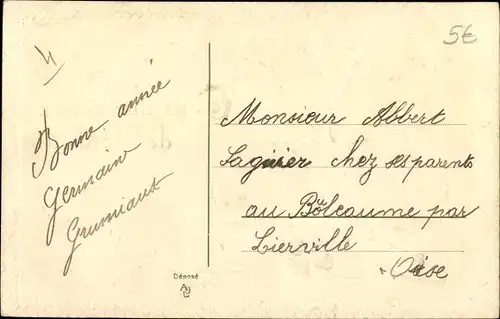 5€
Bonne année
Germaine
Grumiaut
Monsieur Albert
Saguier chez ses parents
au Boleaume par
Lierville
Oise
Déposé